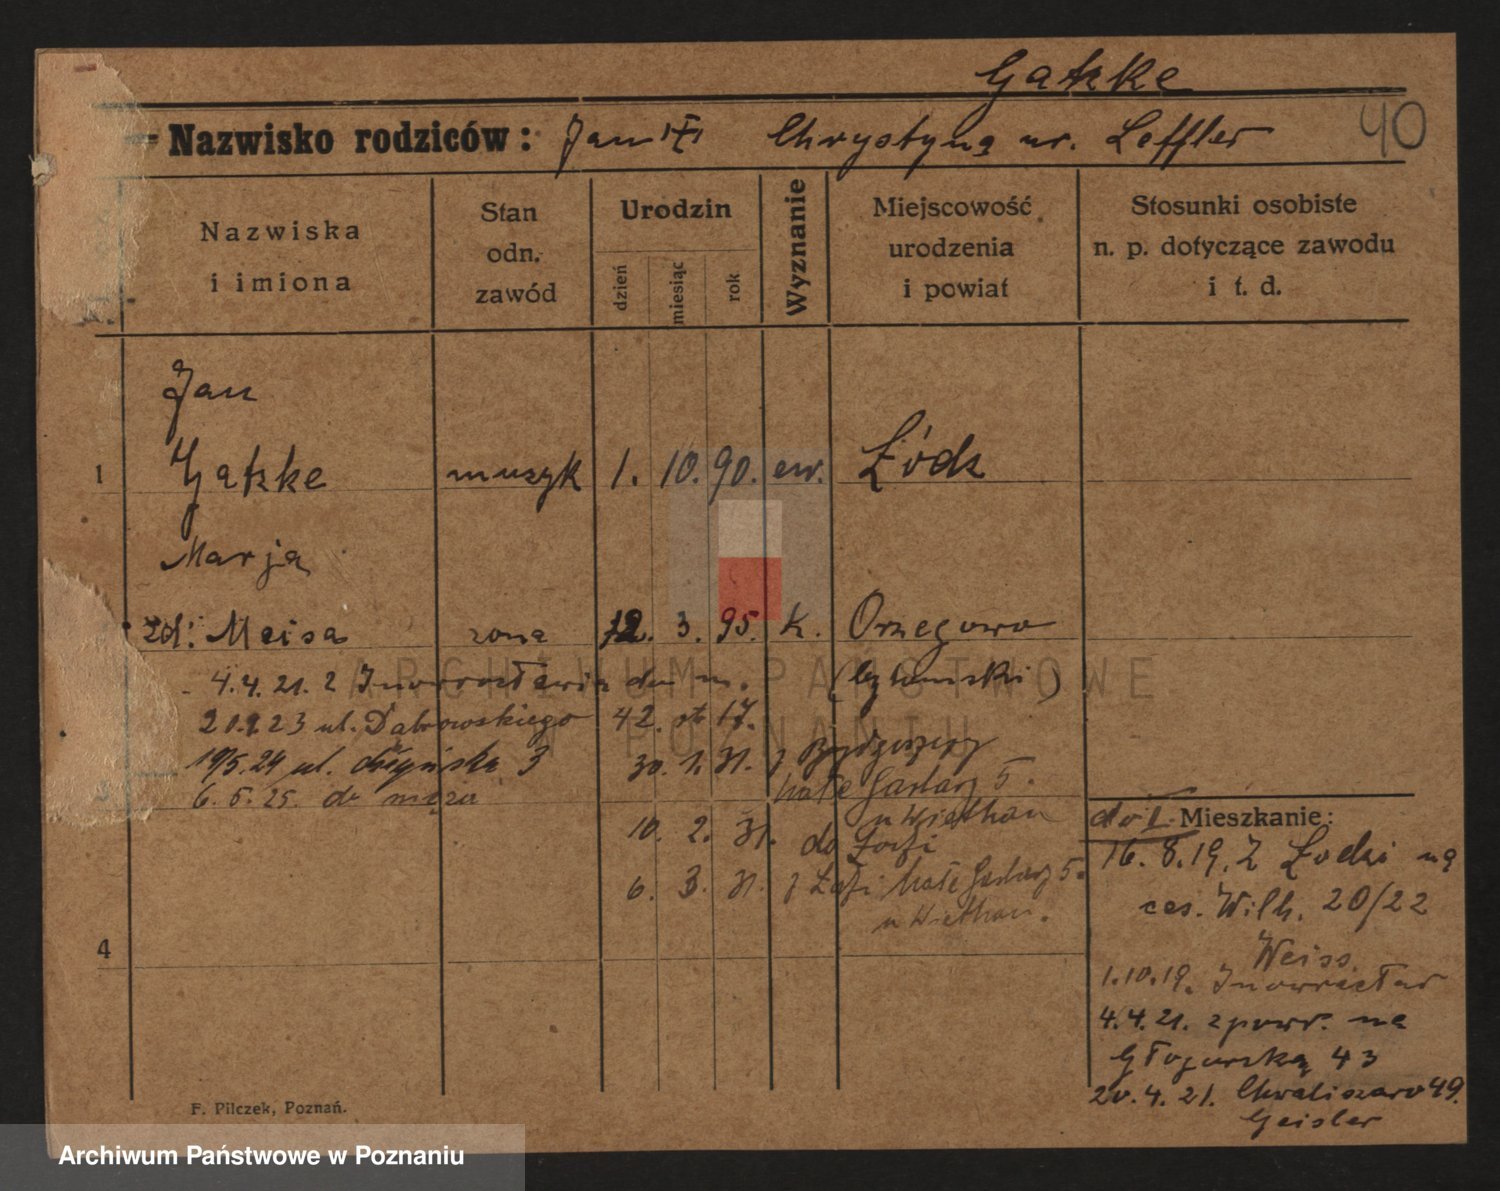 Gatzke
40
Nazwisko rodziców: Jan Chrystyna ur. Leffler
Nazwiska i imiona
Stan odn. zawód
Urodzin
dzień
miesiąc
rok
Wyznanie
Miejscowość urodzenia i powiat
Stosunki osobiste n. p. dotyczące zawodu i t. d.
Jan
1 Gatzke muzyk 1. 10. 90. ew. Łódź
Marja
zd: Meisa żona 12. 3. 95. k. Orzegowo
4.4.21. z Inowrocławia do m. (bytomski)
23 ul. Dąbrowskiego 42. 17.
24 ul. 3 30. 1. 31. z Bydgoszczy
Małe Garbary 5.
6. 5. 25. do męża
u Wiethan
10. 2. 31. do Łodzi
6. 3. 31. z Łodzi Małe Garbary 5.
u Wiethan.
4
Mieszkanie:
16. 8. 19. Z Łodzi na
ces. Wilh. 20/22
Weiss
1.10.19. Inowrocław
4.4.21. z powr. na
Głogowską 43
20. 4. 21. Chwaliszewo 49.
Geisler
F. Pilczek, Poznań.
ARCHIWUM PAŃSTWOWE
W POZNANIU
Archiwum Państwowe w Poznaniu